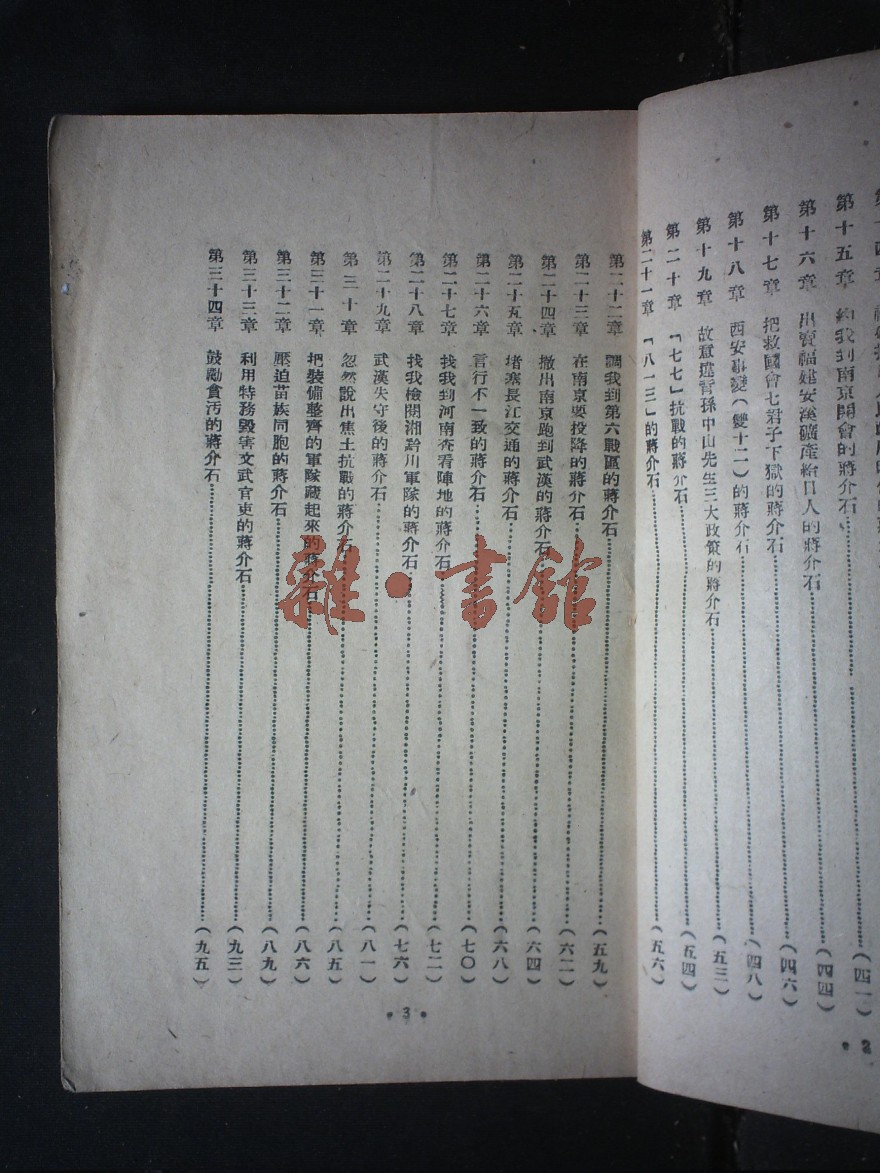 第十五章 約我到南京開會的蔣介石……(四一)
第十六章 出賣福建安溪礦產給日人的蔣介石……(四四)
第十七章 把救國會七君子下獄的蔣介石……(四六)
第十八章 西安事變(雙十二)的蔣介石……(四八)
第十九章 故意違背孫中山先生三大政策的蔣介石……(五三)
第二十章 「七七」抗戰的蔣介石……(五四)
第二十一章 「八一三」的蔣介石……(五六)
• 2
第二十二章 調我到第六戰區的蔣介石……(五九)
第二十三章 在南京要投降的蔣介石……(六二)
第二十四章 撤出南京跑到武漢的蔣介石……(六四)
第二十五章 堵塞長江交通的蔣介石……(六八)
第二十六章 言行不一致的蔣介石……(七〇)
第二十七章 找我到河南查看陣地的蔣介石……(七二)
第二十八章 找我檢閱湘黔川軍隊的蔣介石……(七六)
第二十九章 武漢失守後的蔣介石……(八一)
第三十章 忽然說出焦土抗戰的蔣介石……(八五)
第三十一章 把裝備整齊的軍隊藏起來的蔣介石……(八六)
第三十二章 壓迫苗族同胞的蔣介石……(八九)
第三十三章 利用特務毀害文武官吏的蔣介石……(九三)
第三十四章 鼓勵貪汚的蔣介石……(九五)
• 3 •
雜·書館